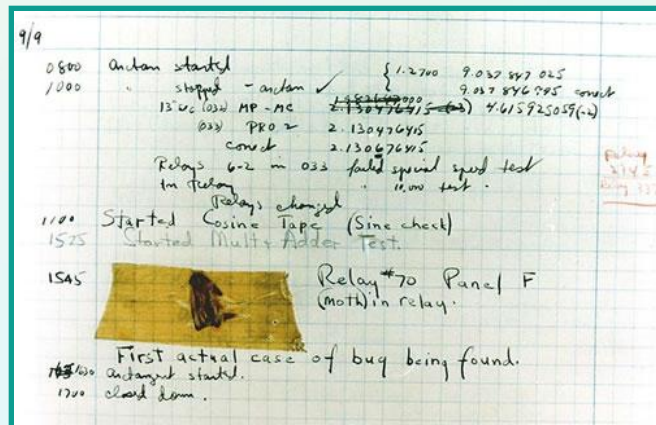 9/9
0800 antan started
1000 " stopped - antan ✓ { 1.2700 9.037 847 025
9.037 846 795 conect
13"uc (032) MP-MC 2.130476415 (-3) 4.615925059(-2)
(033) PRO 2 2.130476415
conect 2.130676415
Relays 6-2 in 033 failed special speed test
in Relay " 10.000 test.
Relays changed
1100 Started Cosine Tape (Sine check)
1525 Started Mult+Adder Test.
1545 Relay #70 Panel F
(moth) in relay.
First actual case of bug being found.
1630 antangent started.
1700 closed down.